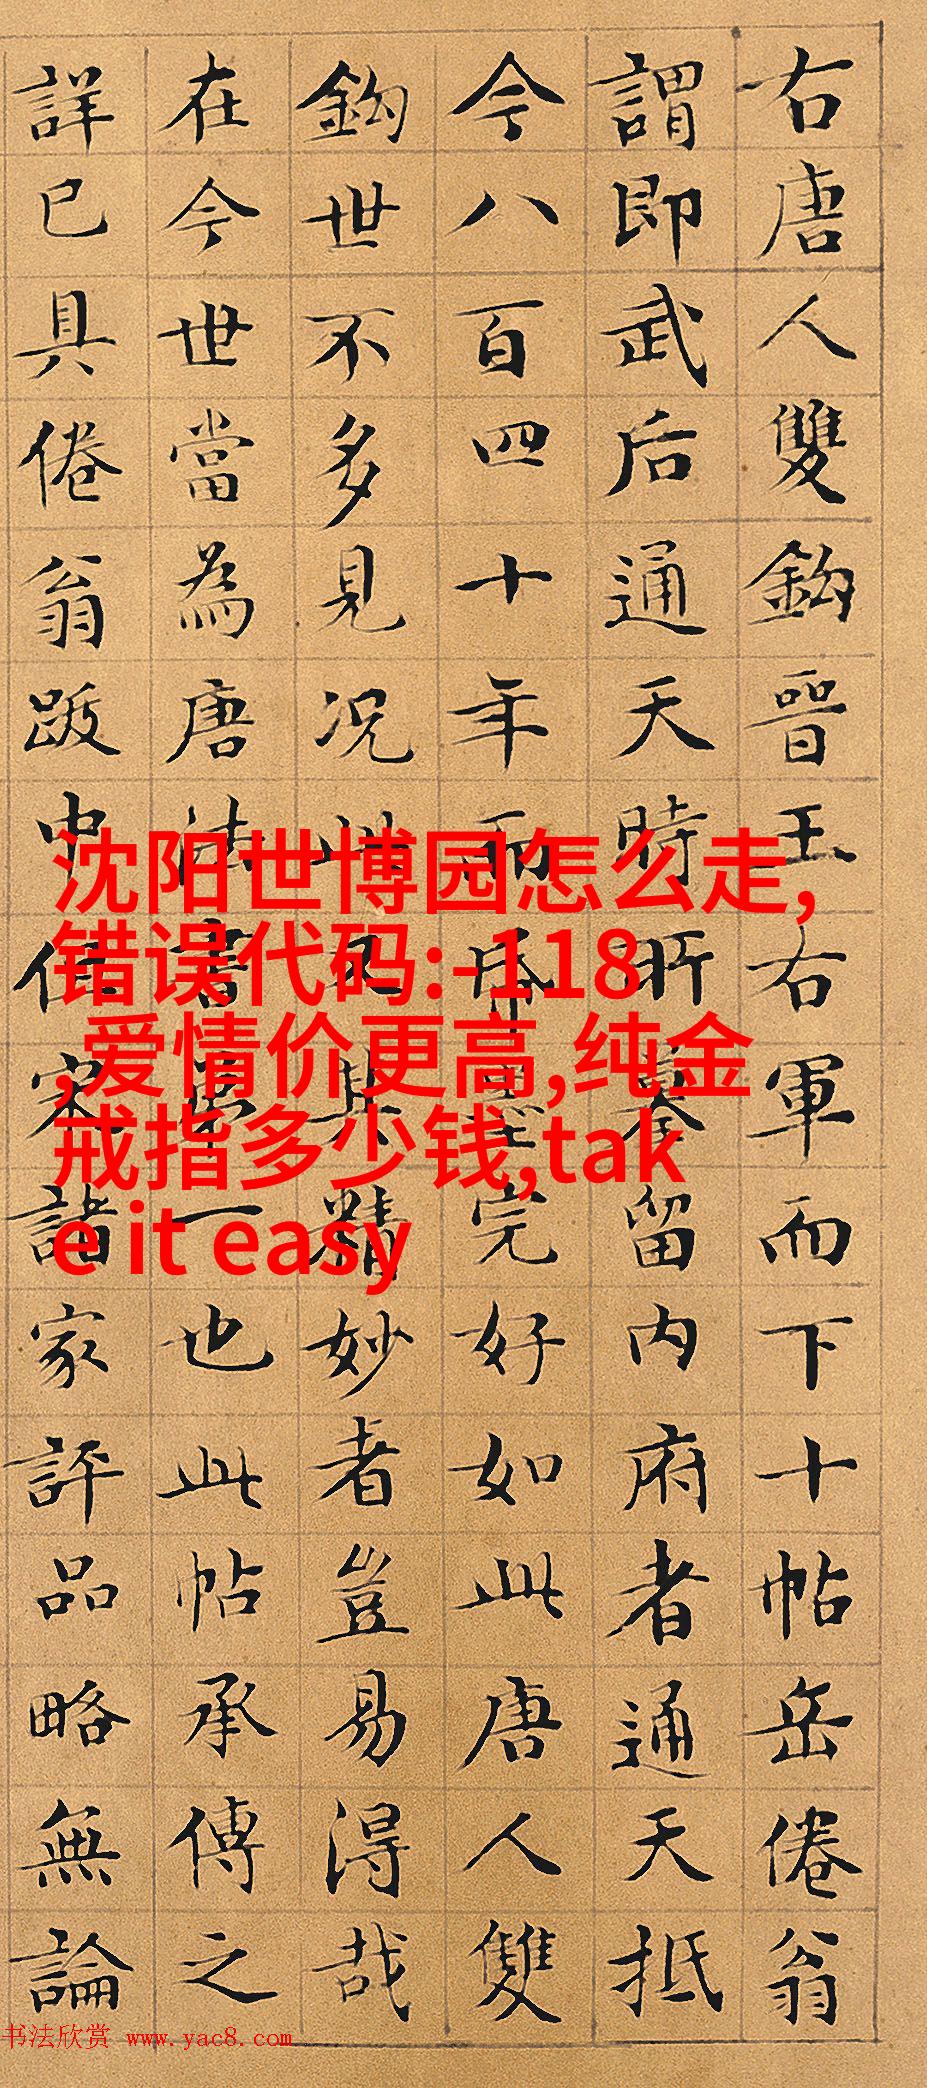 右唐人雙鈎晉王右軍而下十帖岳倦翁
謂即武后通天時所摹留内府者通天抵
今八百四十年而墨完好如此唐人雙
鈎世不多見况此其精妙者豈易得哉
在今世當為唐法書第一也此帖承傳之
詳已具倦翁跋中宋諸家評品略無論
沈阳世博园怎么走,
错误代码:-118
,爱情价更高,纯金
戒指多少钱,tak
e it easy
书法欣赏 www.yac8.com